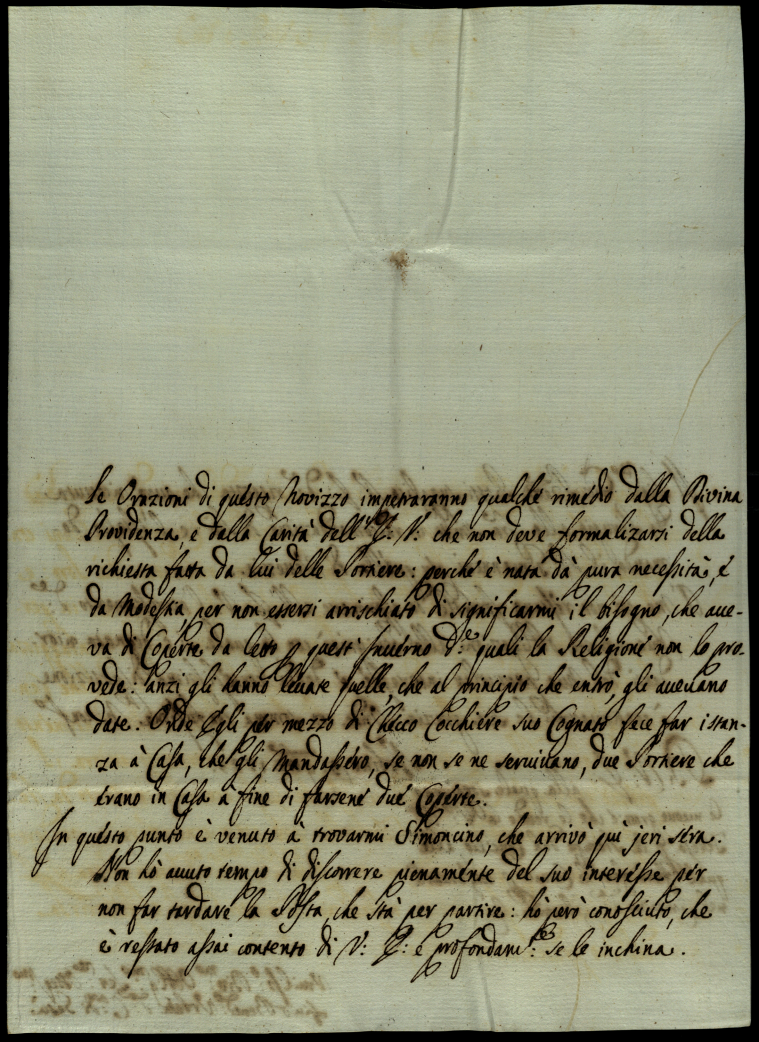 Le Orazioni di questo Novizzo impetraranno qualche rimedio dalla Divina
Providenza, e dalla Carità dell' V: che non deve formalizarsi della
richiesta fatta da lui delle Portiere: perché è nata da pura necessità, e
da Modestia, per non essersi arrischiato di significarmi il bisogno, che aue-
va di Coperte da letto p quest' Inverno d.e quali la Religione non lo pro-
vede: anzi gli hanno levate quelle, che al principio che entrò, gli aueuano
date. Onde Egli per mezzo di Checco Cocchiere suo Cognato fece far istan-
za à Casa, che gli Mandassero, se non se ne seruiuano, due Portiere che
erano in Casa à fine di farsene due Coperte.
In questo punto è venuto à trovarmi Simoncino, che arrivò quì jeri sera.
Non hò auuto tempo di discorrere pienamente del suo interesse per
non far tardare la Posta, che stà per partire: hò però conosciuto, che
è restato assai contento di V: e profondam.te se le inchina.